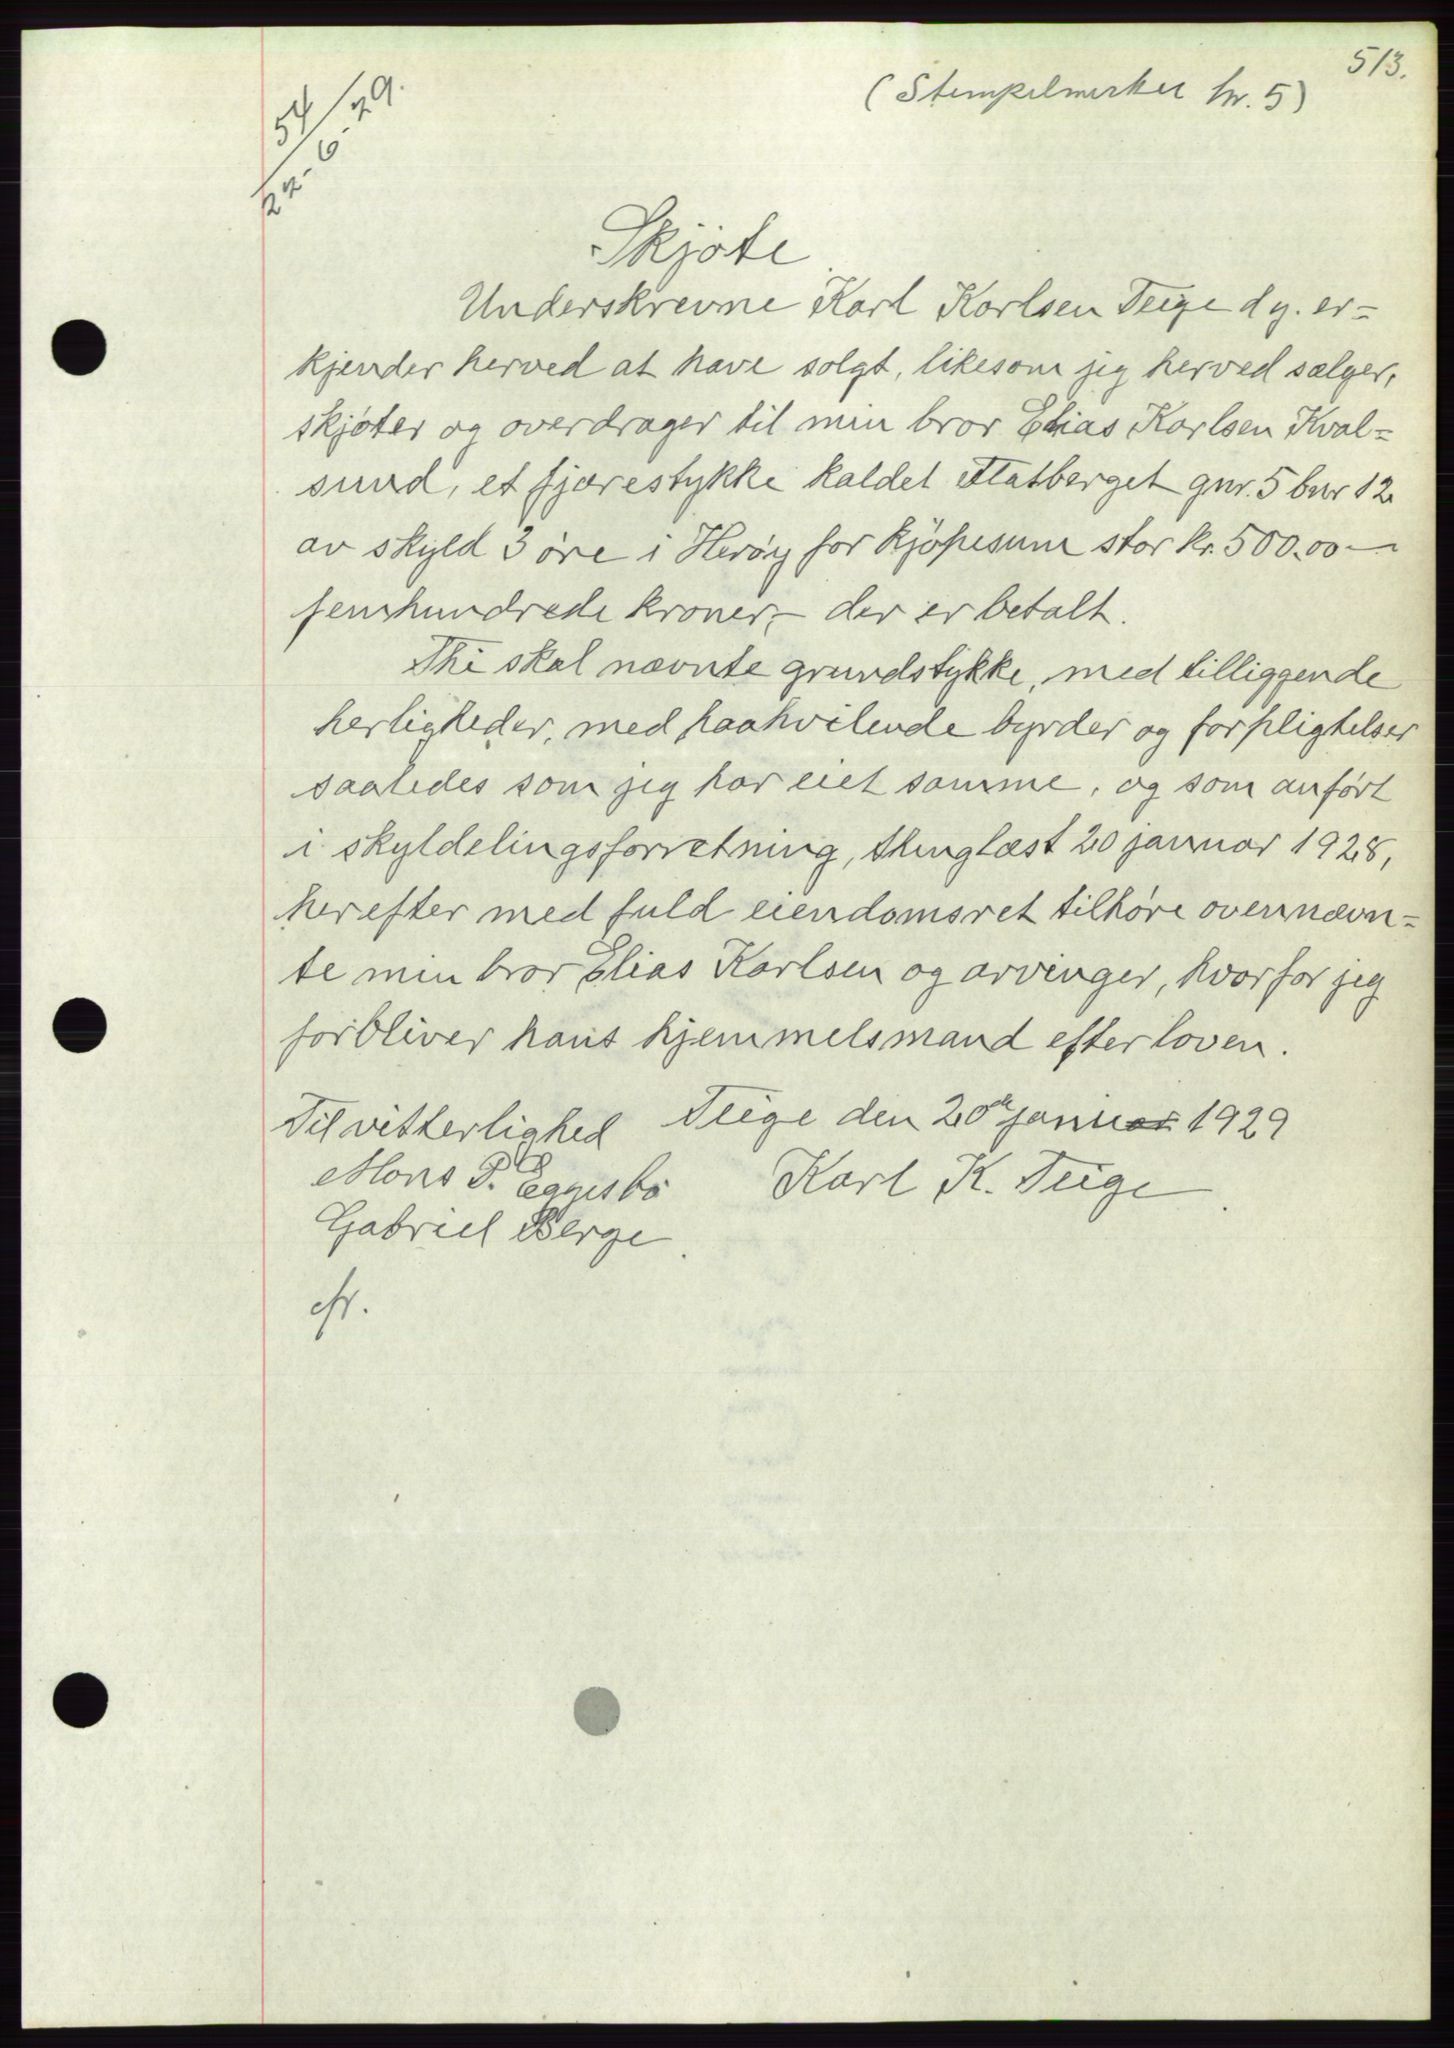 513.
(Stempelmerker kr. 5)
54
22-6-29.
Skjøte
Underskrevne Karl Karlsen Teige d y. er=
kjender herved at have solgt, likesom jeg herved sælger,
skjøter og overdrager til min bror Elias Karlsen Kval=
sund, et fjærestykke kaldet Flatberget gnr. 5 bnr 12
av skyld 3 øre i Herøy for kjøpesum stor kr. 500.00 —
femhundrede kroner,— der er betalt.
Thi skal nævnte grundstykke, med tilliggende
herligheder, med paahvilende byrder og forpligtelser
saaledes som jeg har eiet samme, og som anført
i skyldelingsforretning, thinglæst 20 januar 1928,
herefter med fuld eiendomsret tilhøre ovennævn=
te min bror Elias Karlsen og arvinger, hvorfor jeg
forbliver hans hjemmelsmand efter loven.
Teige den 20de januar 1929
Til vitterlighed
Mons P. Eggesbø
Karl K. Teige
Gabriel Berge